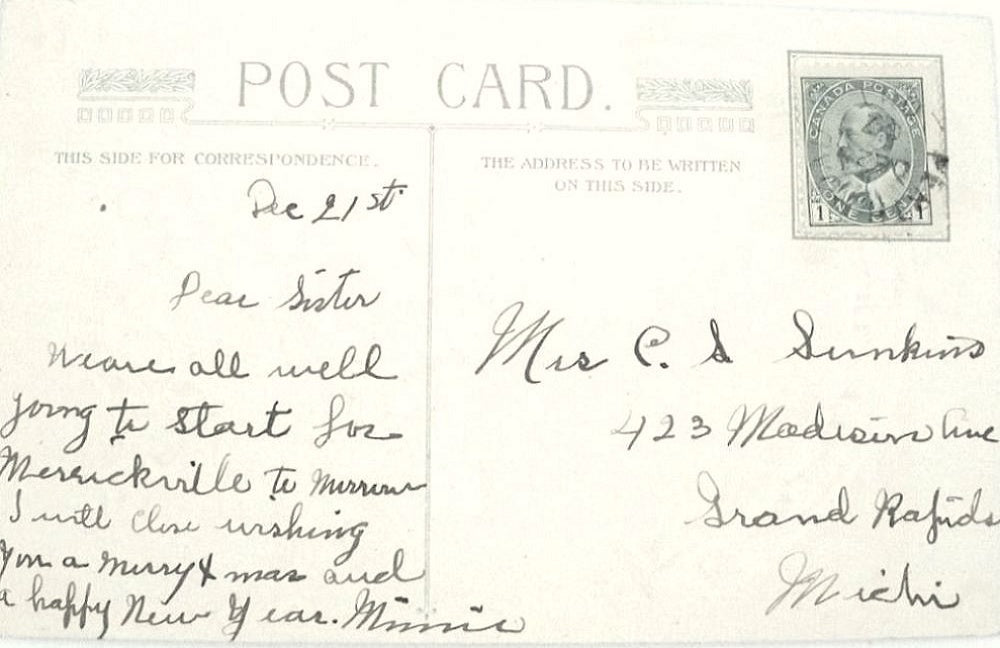 POST CARD.
THIS SIDE FOR CORRESPONDENCE.
Dec 21st
Dear Sister
We are all well
going to start for
Merrickville to morrow
I will close wishing
you a merry Xmas and
a happy New Year. Minnie
THE ADDRESS TO BE WRITTEN
ON THIS SIDE.
CANADA POSTAGE
ONE CENT
1 1
Mrs C. S
423 Madison Ave
Grand Rapids
Mich